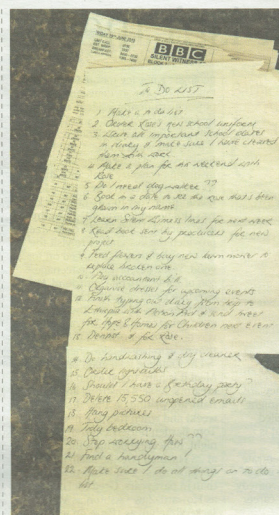 BBC
SILENT WITNESS
To Do LIST
1 Make a to do list
2 Order Rose's new school uniform
3 Write all important school dates
in diary & make sure I have cleared
them for work
4 Make a plan for the weekend with
Rose
5 Do I need dog walker ??
6 Book in a date to see the
in my mouth
7 Learn Silent Witness lines for next week
8 Read book sent by producers for new
project
9 Feed flowers & buy new lawn mower to
replace broken one
10 Pay accountant bill
11 Organise dresses for upcoming events
12 Finish typing out diary from trip to
with & send
for Hope & Homes for Children next event
13 Dentist for Rose
14 Do handwashing & dry cleaner
15 Order
16 Should I have a birthday party?
17 Delete 15,550 unopened emails
18 Hang pictures
19 Tidy bedroom
20 Stop worrying
21 Find a handyman!
22 Make sure I do all things on to do
list